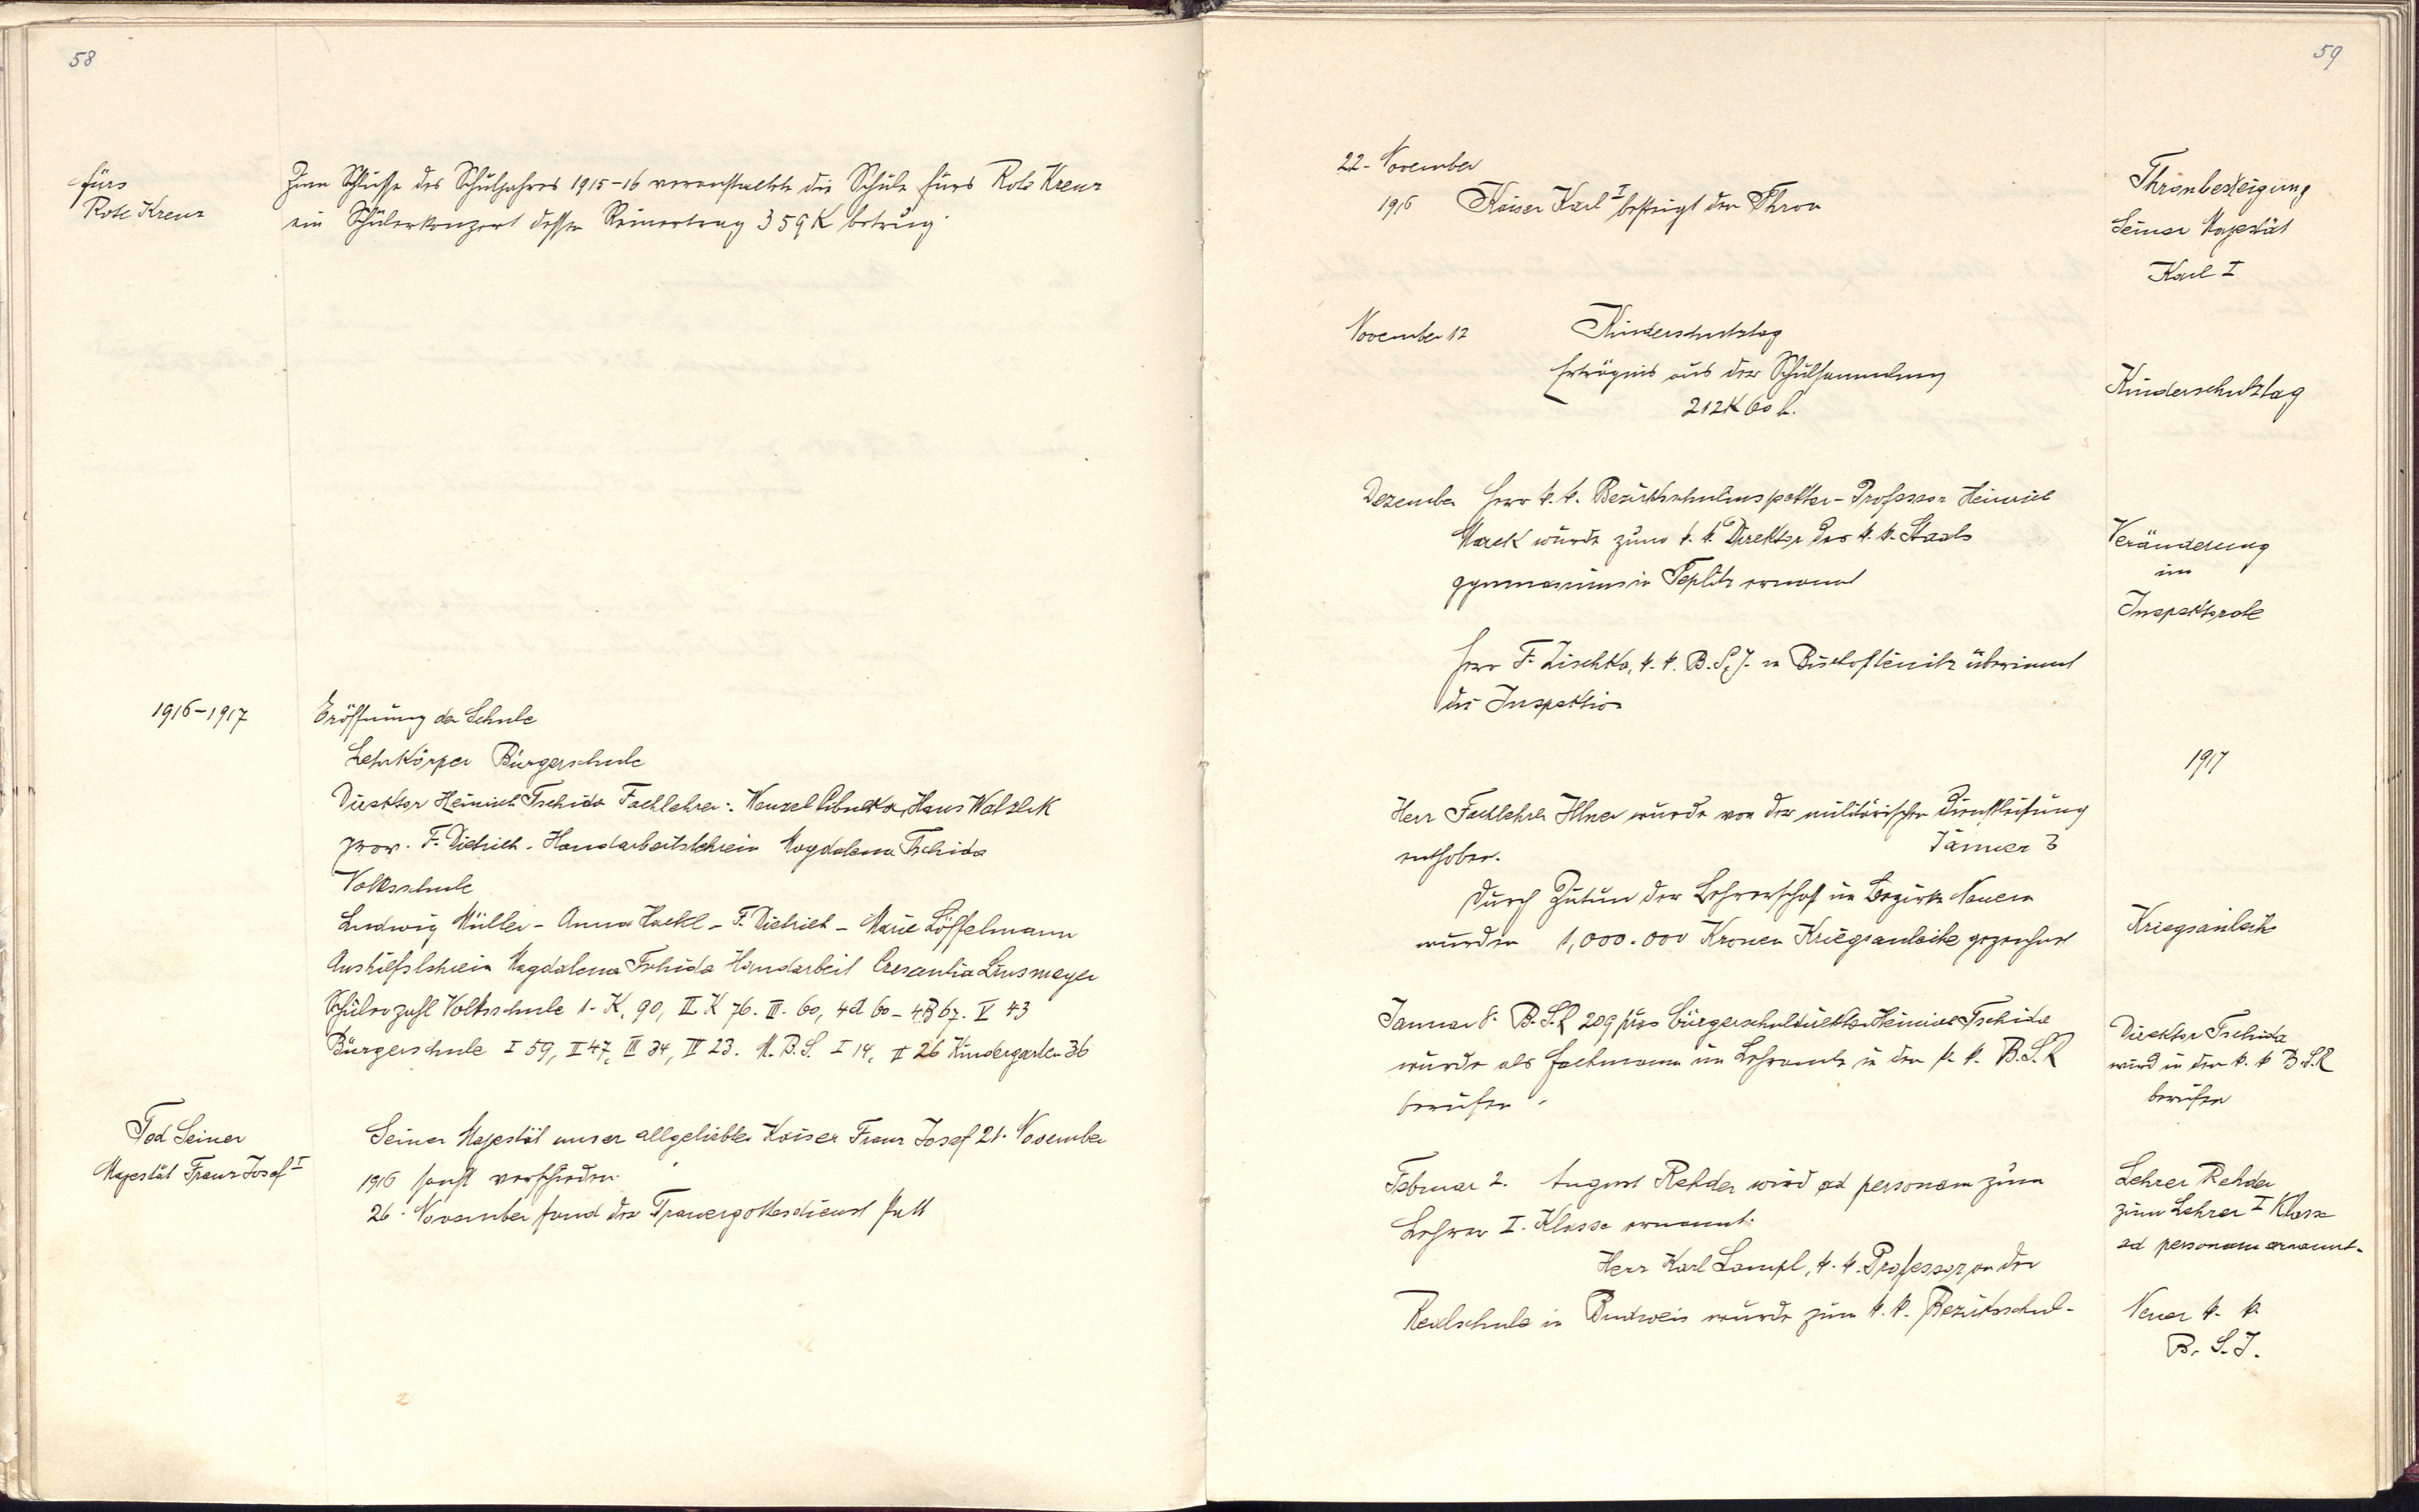 58
fürs
Rote Kreuz
Zum Schlusse des Schuljahres 1915-16 veranstaltete die Schule fürs Rote Kreuz
ein Schülerkonzert dessen Reinertrag 359 K betrug.
1916-1917
Eröffnung der Schule
Lehrkörper Bürgerschule
Direktor Heinrich Tschida Fachlehrer: Wenzel Hans Watzlik
prov. F. Dietrich - Handarbeitslehrein Magdalena Tschida
Volksschule
Ludwig Müller - Anna Hackl - F. Dietrich - Marie Löffelmann
Aushilfslehrein Magdalena Tschida Handarbeit Crescentia Linsmeyer
Schülerzahl Volksschule 1. K. 90, II K 76. III. 60, 4a 60 - 4B 67. V 43
Bürgerschule I 59, II 47, III 34, IV 23. M. B. S. I 14, II 26 Kindergarten 36
Tod Seiner
Majestät Franz Josef I
Seiner Majestät unser allgeliebter Kaiser Franz Josef 21. November
1916 sanft verschieden.
26. November fand der Trauergottesdienst statt
59
22. November
1916 Kaiser Karl I besteigt den Thron
Thronbesteigung
Seiner Majestät
Karl I
November 12 Kinderschutztag
Erträgnis aus der Schulsammlung
212 K 60 h.
Kinderschutztag
Dezember Herr k. k. Bezirksschulinspektor - Professor Heinrich
Marek wurde zum k. k. Direktor des k. k. Staats
gymnasiums in Teplitz ernannt
Veränderung
im
Inspektorate
Herr F. Zischka, k. k. B. S. J. in Bischofteinitz übernimmt
die Inspektion
1917
Herr Fachlehrer Illner wurde von der militärischen Dienstleistung
enthoben. Jänner 3
Durch Zutun der Lehrerschaft im Bezirke Neuern
wurden 1,000.000 Kronen Kriegsanleihe gezeichnet
Kriegsanleihe
Januar 8. B. S. R 209 Bürgerschuldirektor Heinrich Tschida
wurde als Fachmann im Lehramte in den k. k. B. S. R
berufen.
Direktor Tschida
wird in den k. k B. S. R
berufen
Februar 2. August Rehder wird ad personam zum
Lehrer I. Klasse ernannt.
Lehrer Rehder
zum Lehrer I Klasse
ad personam ernannt.
Herr Karl Lampl, k. k. Professor an der
Realschule in Budweis wurde zum k. k. Bezirksschul-
Neuer k. k.
B. S. J.